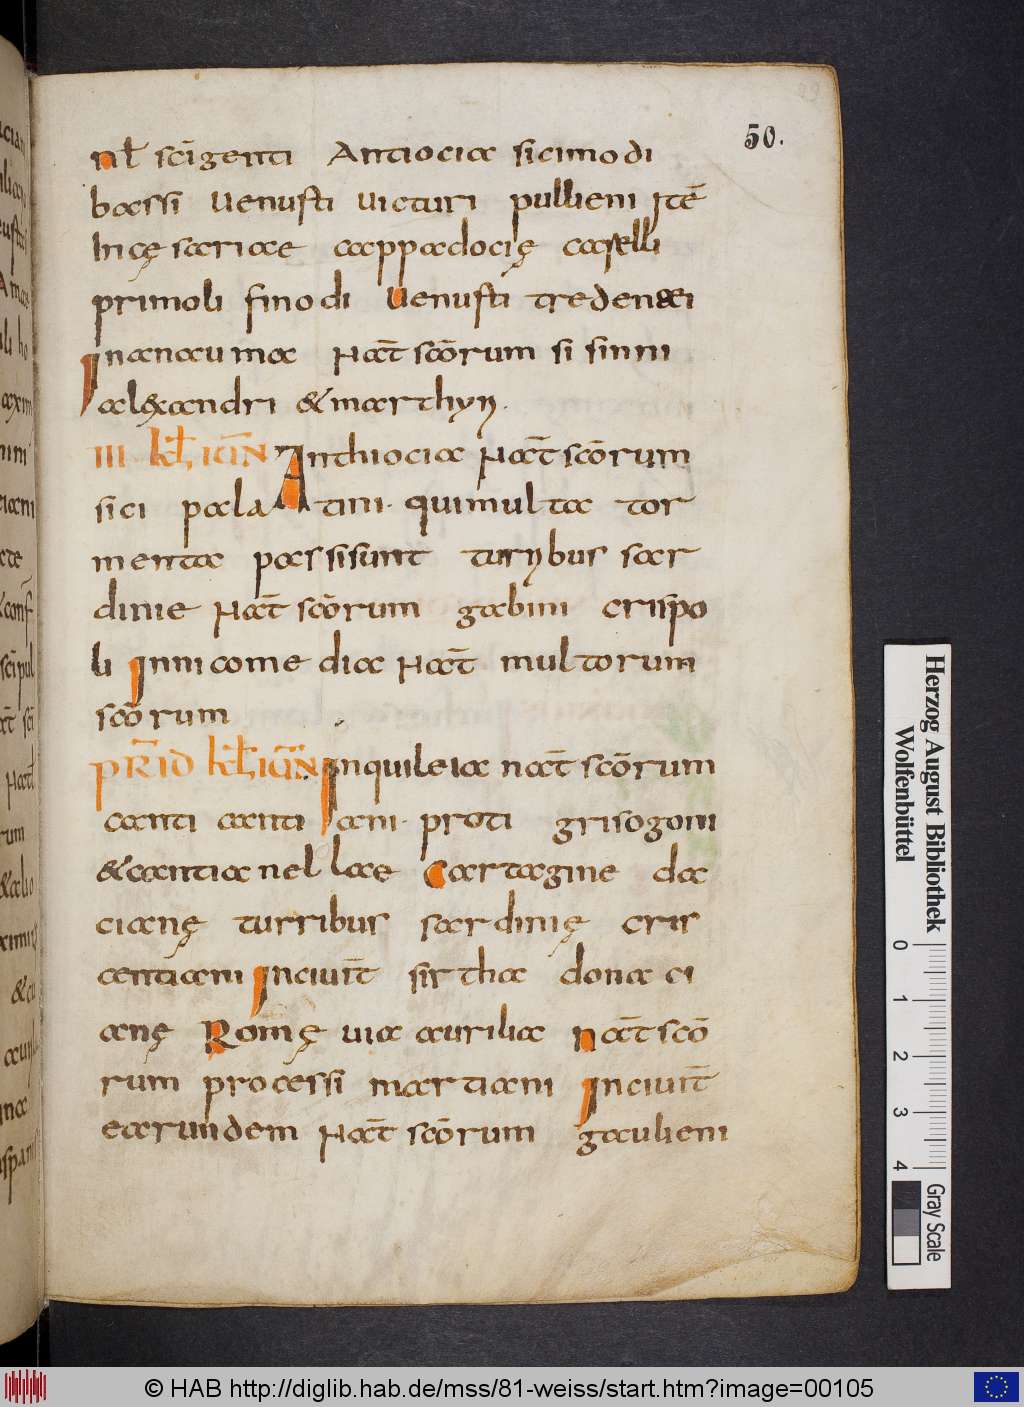 50.
nl̄ sc̄i genti Antiocia sicimodi
bassi Uenusti Uicturi pullieni Itē
In cę sariae cappadocię castelli
primoli finodi Uenusti tredenti
In anauma Nat̄ sc̄orum sisinni
alexandri & marthyrͅ.
III kl̄ iūn Anthiocia Nat̄ sc̄orum
sici palatini. qui multa tor
menta passi sunt turribus sar
dinie Nat̄ sc̄orum gabini crispo
li In nicomedia Nat̄ multorum
sc̄orum
PR̄ID kl̄ iūn In quileia nat̄ sc̄orum
canti cantiani. proti grisogoni
& cantianellae Cartagine da
cianę turribus sardinię cris
centiani In ciuit̄ sirtha dona ci
anę Romę uia aurilia nat̄ sc̄o
rum processi martiani In ciuit̄
earundem Nat̄ sc̄orum gaulieni
Herzog August Bibliothek
Wolfenbüttel
0 1 2 3 4
Gray Scale
© HAB http://diglib.hab.de/mss/81-weiss/start.htm?image=00105